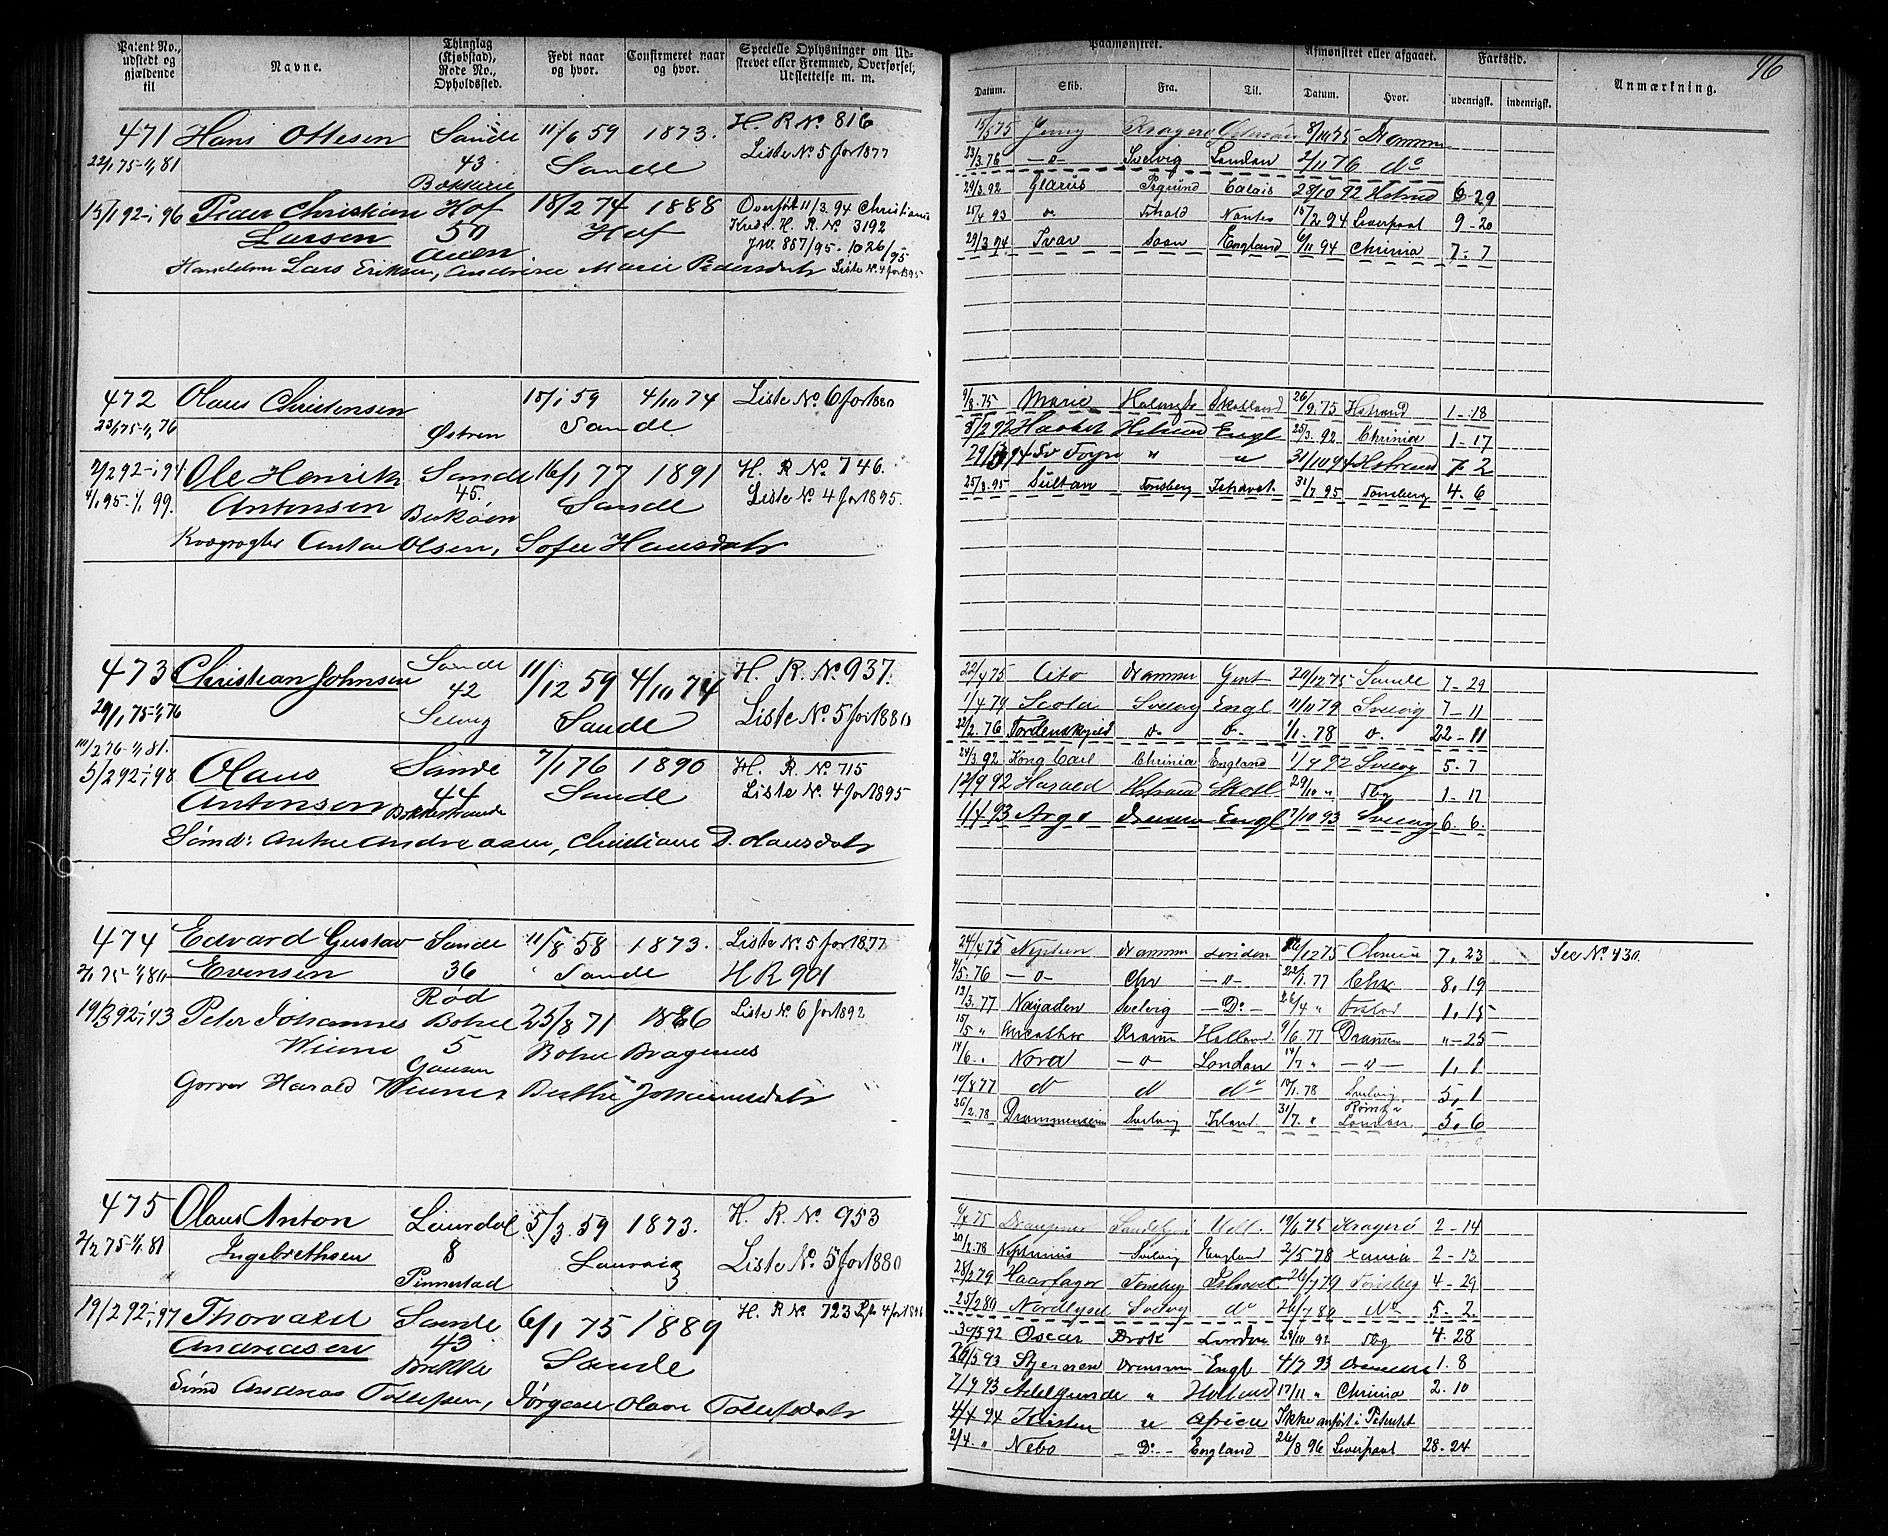 Patent No., udstedt og gjældende til
Navne.
Thinglag (Kjøbstad), Rode No., Opholdssted.
Født naar og hvor.
Confirmeret naar og hvor.
Specielle Oplysninger om Udskrevet eller Fremmed, Overførsel, Udslettelse m. m.
471 Hans Ottesen Sande 11/6 59 1873. H. R. No. 816
22/1 75-1/1 81 43 Sande Liste No. 5 for 1877
15/1 92-1/1 96 Peder Christian Hof 18/2 74 1888 Overført 11/3. 94 Christiania
Larsen 50 Hof Kreds. H. R. No. 3192
Jw. 857/95. 1026/95
Lars Eriksen, Andrine Marie Pedersdatr Liste No. 4 for 1895
472 Olaus Christensen 15/1 59 4/10 74 Liste No. 6 for 1880
23/1 75-1/1 76 Østren Sande
2/2 92-1/1 94 Ole Henrik Sande 16/1 77 1891 H. R. No. 746.
4/1 95-1/1 99. Antonsen 45. Sande Liste No. 4 for 1895.
Anton Olsen, Sofie Hansdatr
473 Christian Johnsen Sande 11/12 59 4/10 74 H. R. No. 937.
29/1 75-1/1 76 42 Selvig Sande Liste No. 5 for 1880
11/2 76-1/1 81.
5/2 92-1/1 98 Olaus Sande 7/1 76 1890 H. R. No. 715
Antonsen 44 Sande Liste No. 4 for 1895
Sømd: Andreasen, Christiane D. Hansdatr
474 Edvard Gustav Sande 11/8 58 1873. Liste No. 5 for 1877
2/2 75-1/1 80 Evensen 36 Sande H R 901
Rød
19/2 92-1/1 93 Peter Johannes Botne 25/8 71 1886 Liste No. 6 for 1892
5 Botne Bragernes
Garver Harald Johannesdatr
475 Olaus Anton Laurdal 5/3. 59 1873. H. R. No. 953
2/2 75-1/1. 81 Ingebrethsen 8 Laurvig Liste No. 5 for 1880
19/2 92-1/1 97 Thorvald Sande 6/1 75 1889 H. R. No. 723
Andreasen 43 Sande
Sømd Andreas Tollefsen, Jørgine Olave Tollefsdatr
96
Paamønstret.
Afmønstret eller afgaaet.
Fartstid.
Anmærkning.
Datum. Skib. Fra. Til. Datum. Hvor. udenrigsk. indenrigsk.
15/5 75 Jenny Kragerø 8/10 75 Drammen
23/3. 76 -o- Svelvig London 2/11 76 do
29/3. 92 Glarus Calais 28/10 92 Hstrand 6-29
25/4 93 o- Fshald Nantes 15/2 94 Liverpool 9-20
29/3. 94 Ivar Soon England 6/11 94 Chrinia 7-7
9/8. 75 Marie Holmsbo Skotland 26/9. 75 Hstrand 1-18
5/2 92 Engl 25/3. 92 Chrinia 1-17
29/3 94 " " 31/10 94 Hstrand 7-2
25/3. 95 Sultan Tønsberg Ishavet 31/7 95 Tønsberg 4-6
22/4 75 Cito Drammen Gent 20/12 75 Sande 7-29
1/4 79 Scotia Svelvig Engl 11/11 79 Svelvig 7-11
22/2. 76 Tordenskjold o- o- 1/1. 78 o- 22-11
24/3 92 Kong Carl Chrinia England 1/9 92 Svelvig 5-7
12/9 92 Harald Hstrand Skotl 29/10 " Tbg 1-17
1/4 93 Argo Drammen Engl 7/10 93 Svelvig 6.6.
24/4 75 Neptun Drammen London 12 75 Chrinia 7,23 See No. 430
4/5. 76 -o- Chr -o- 22/1. 77 Chr 8,19
13/3. 77 Najaden Svelvig -Do- 26/4 " 1,15
15/5 " Dramm Holland 9/6 77 Drammen "-25
14/6. " Nora -o- London 14/7 " -o- 1,1
10/8 77 do do do 10/1. 78 Svelvig 5,1
26/2. 78 Drammenseren Svelvig Island 31/7. " London 5,6
75 19/6 75 Kragerø 2-14
20/2. 78 Neptunus Svelvig England 2/5 78 Xania 2-13
28/2 79 Haarfager Tønsberg Ishavet 26/7 79 Tønsberg 4-29
25/2 80 Nordlyset Svelvig do 26/7 80 do 5-2
30/5 92 Oscar London 29/10 92 Tbg 4-28
26/5 93 Stjernen Drammen Engl 4/7 93 Drammen 1.8
7/9 93 Adelgunde " Holland 17/11 " Chrinia 2.10
4/4 94 Kristine " Africa Ikke anført i Patentet
2/4. " Nebo -Do- England 26/8 96 Liverpool 28-24